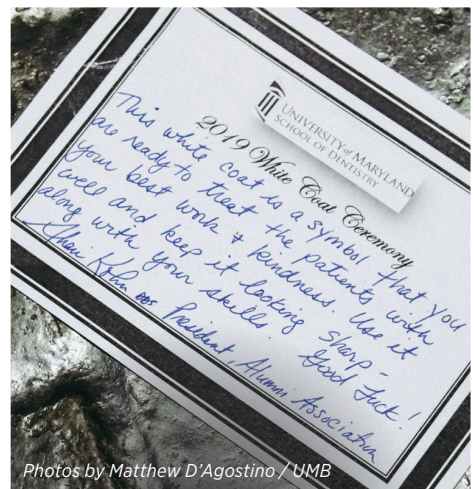 UNIVERSITY of MARYLAND
SCHOOL OF DENTISTRY
2019 White Coat Ceremony
This white coat is a symbol that you
are ready to treat the patients with
your best work & kindness. Use it
well and keep it looking sharp -
along with your skills. Good Luck!
Sheri Kohn DDS President, Alumni Association
Photos by Matthew D'Agostino / UMB